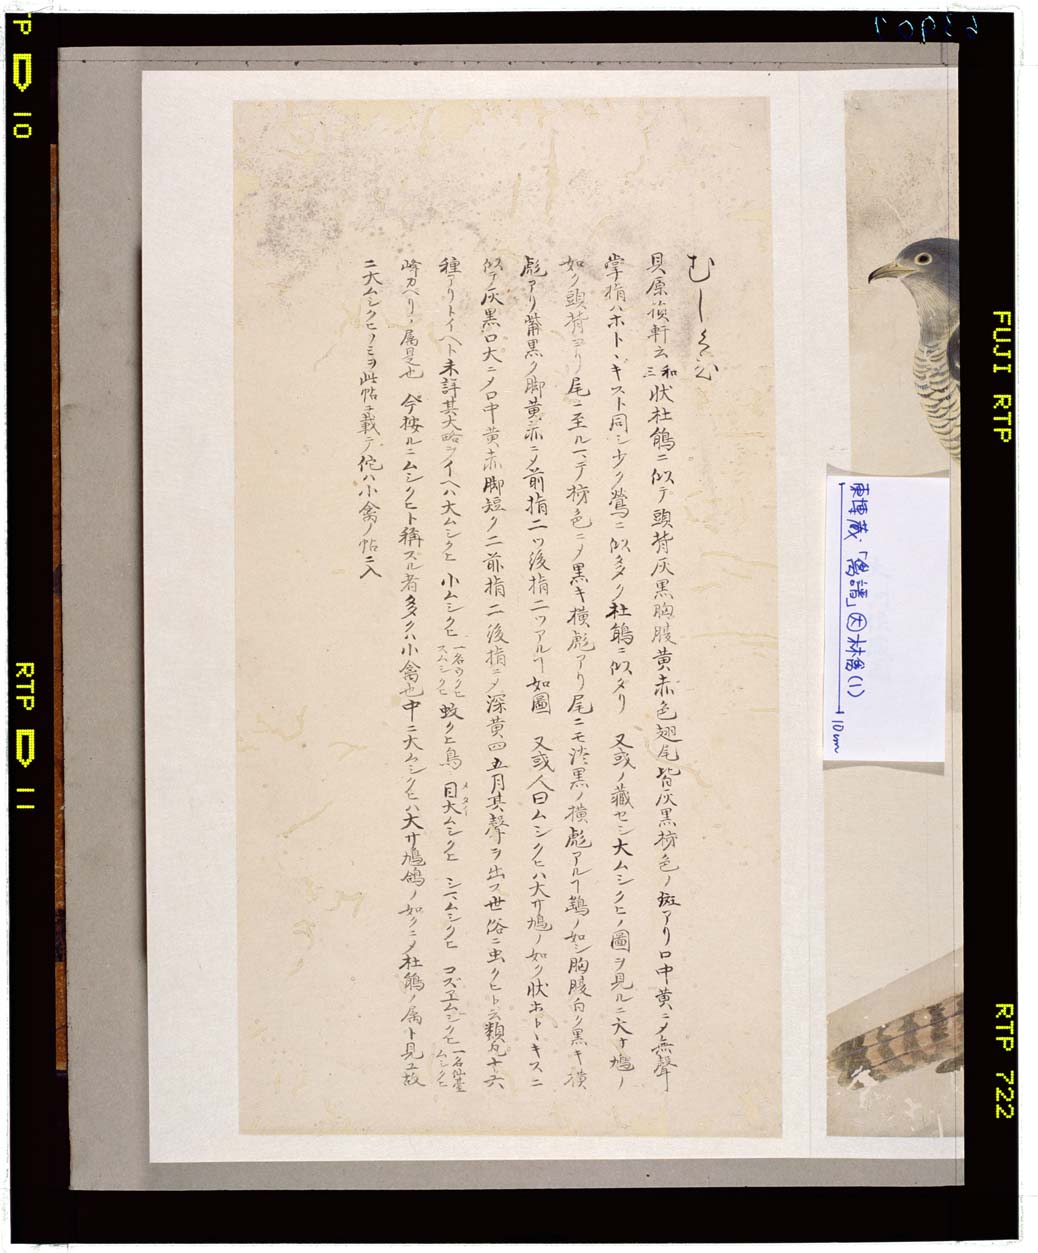 むしくひ
貝原損軒云和三状杜鵑ニ似テ頭背灰黒胸腹黄赤色翅尾皆灰黒柹色ノ斑アリ口中黄ニメ無聲
掌指ハホトヽギスト同シ少ク鶯ニ似多ク杜鵑ニ似タリ 又或ノ藏セシ大ムシクヒノ圖ヲ見ルニ大サ鳩ノ
如ク頭背ヨリ尾ニ至ルマテ柹色ニメ黒キ横彪アリ尾ニモ淡黒ノ横彪アルヿ鷂ノ如シ胸腹白ク黒キ横
彪アリ觜黒ク脚黄赤ニメ前指二ツ後指二ツアルヿ如圖 又或人曰ムシクヒハ大サ鳩ノ如ク状ホトヽキスニ
似テ灰黒口大ニメ口中黄赤脚短ク二前指二後指ニメ深黄四五月其聲ヲ出ス世俗ニ虫クヒト云類凡十六
種アリトイヘト未詳其大略ヲイヘハ大ムシクヒ 小ムシクヒ 一名ウクヒスムシクヒ 蚊クヒ鳥 目大ムシクヒ メタイ シマムシクヒ コズヱムシクヒ 一名仙臺ムシクヒ
峰カヘリノ属是也 今按ルニムシクヒト稱スル者多クハ小禽也中ニ大ムシクヒハ大サ鳩鴿ノ如クニメ杜鵑ノ属ト見ユ故
ニ大ムシクヒノミヲ此帖ニ載テ佗ハ小禽ノ帖ニ入
東博蔵「禽譜」㊅林禽(1)
10cm
TP 10
RTP 11
FUJI RTP
RTP 722